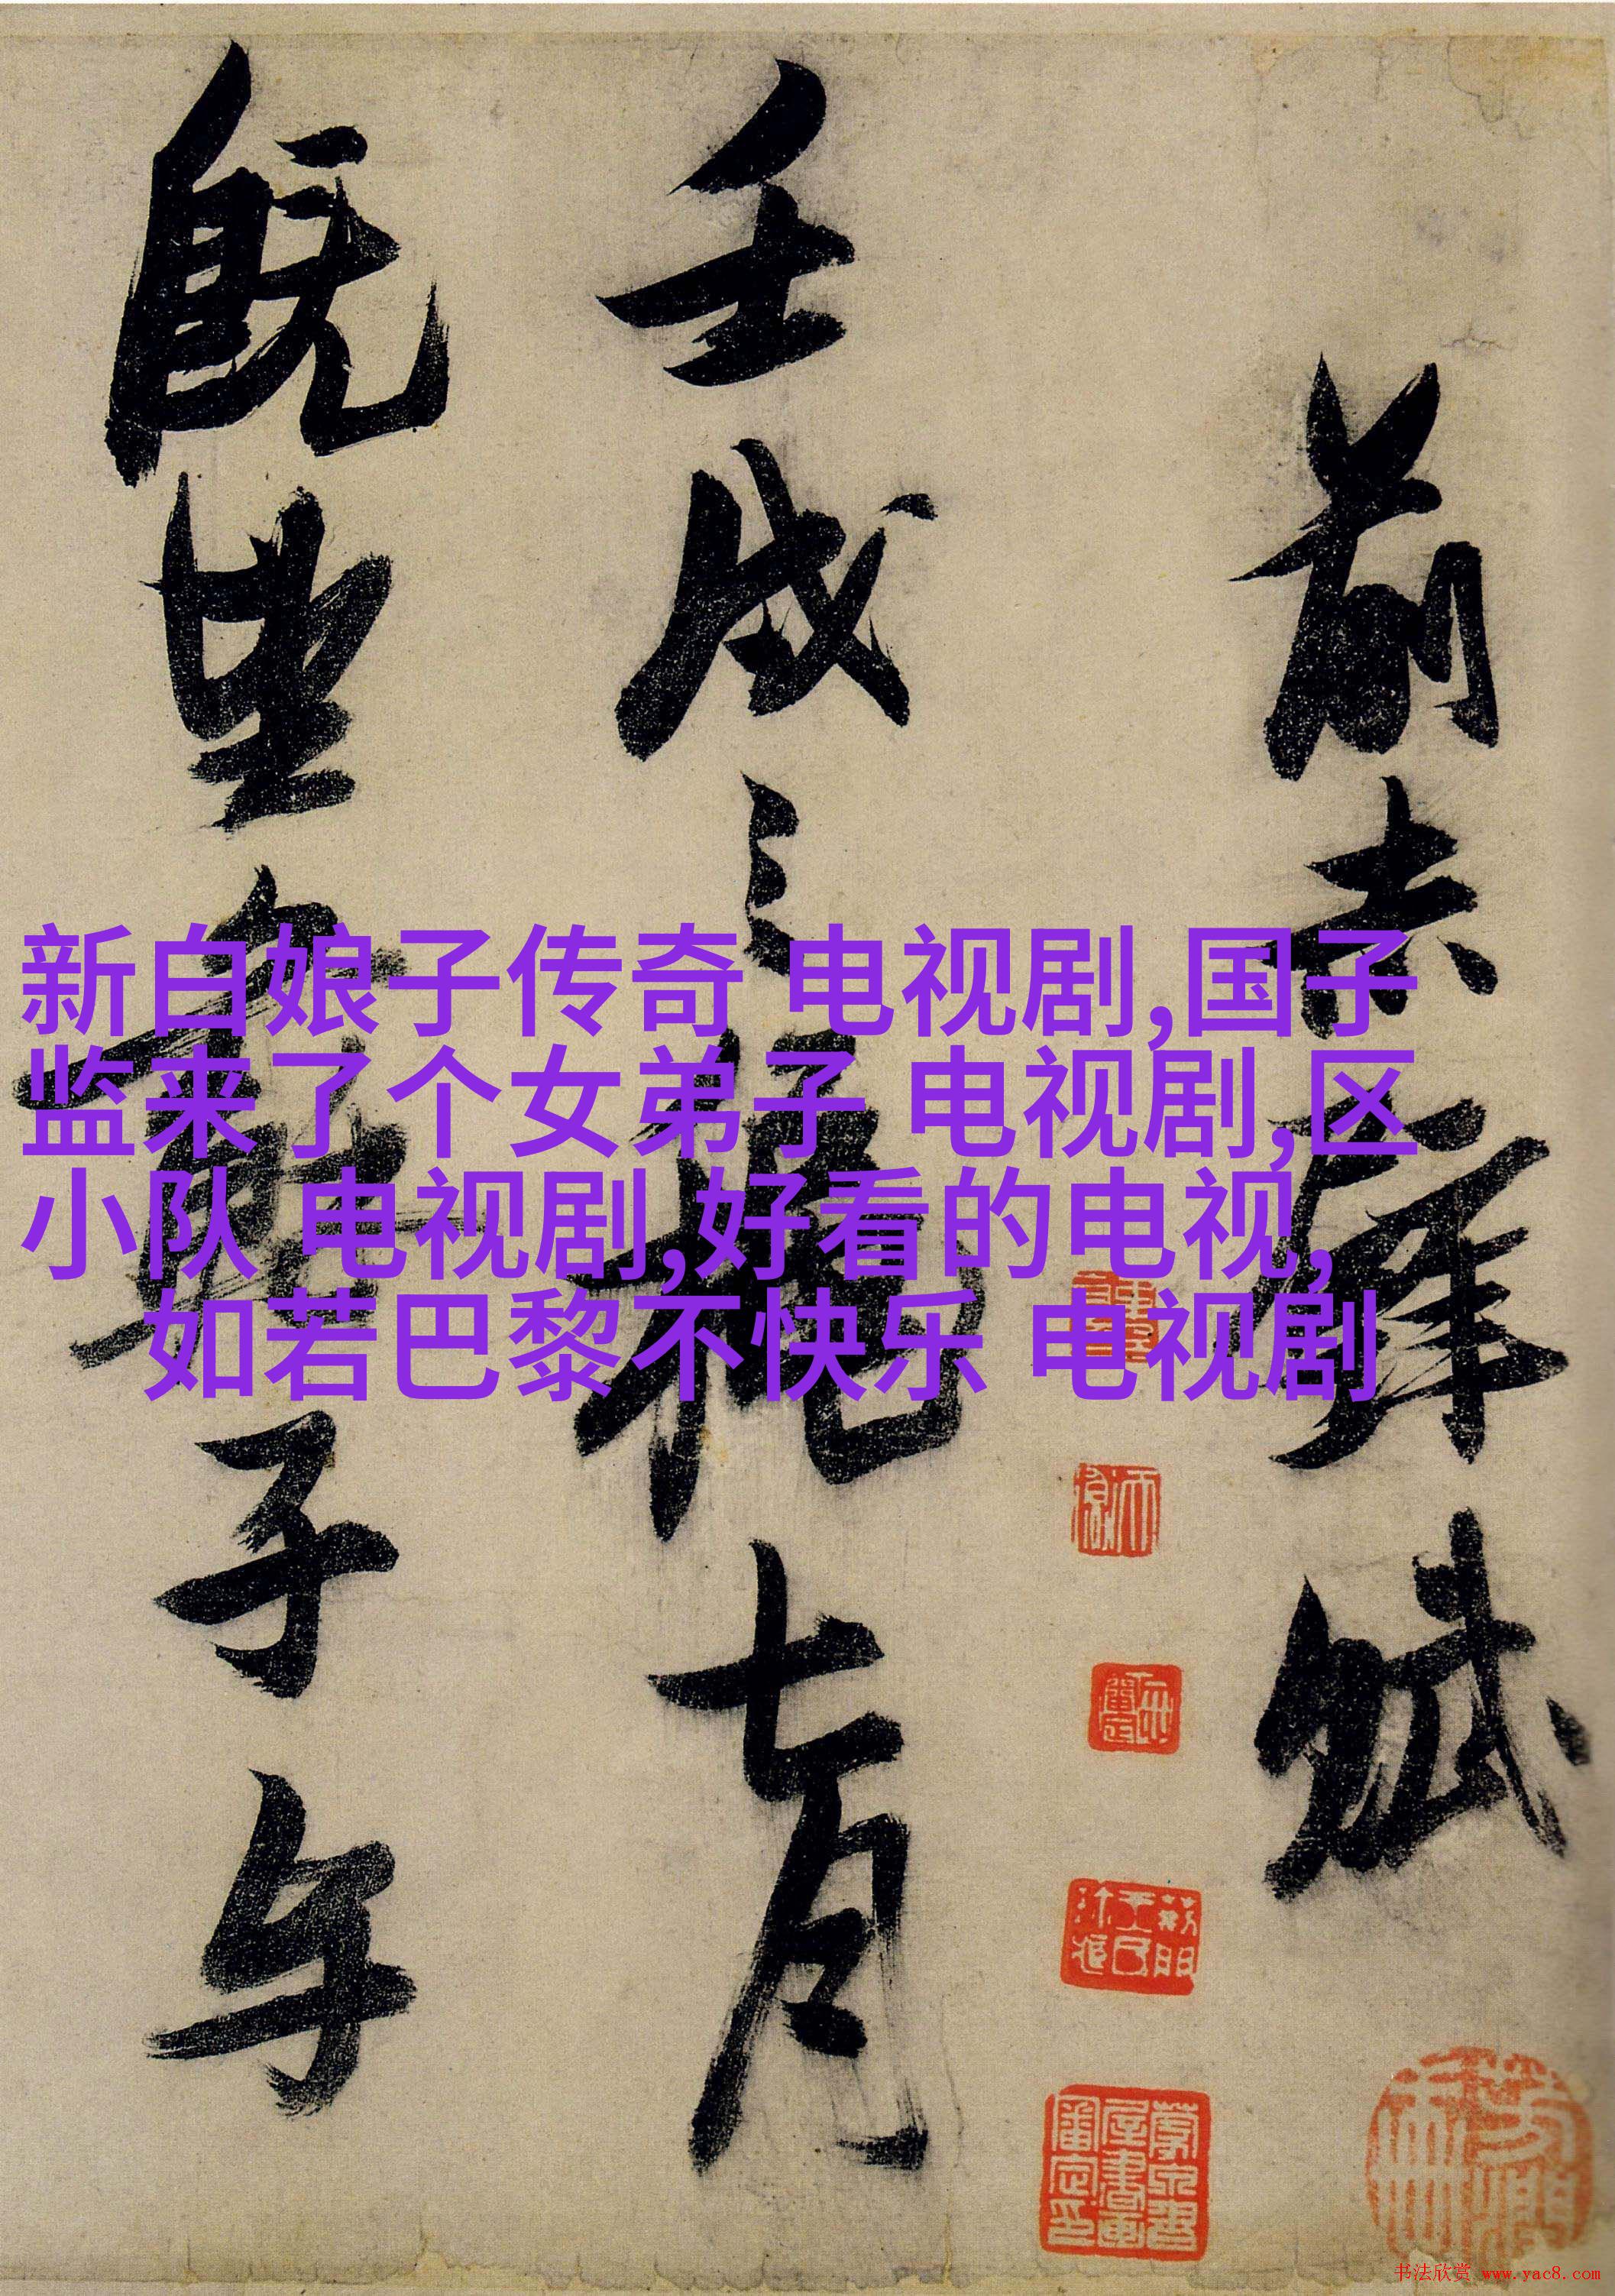 新白娘子传奇 电视剧,国子
监来了个女弟子 电视剧,区
小队 电视剧,好看的电视,
如若巴黎不快乐 电视剧
前赤壁賦
壬戌之秋七月
既望蘇子与
书法欣赏 www.yac8.com